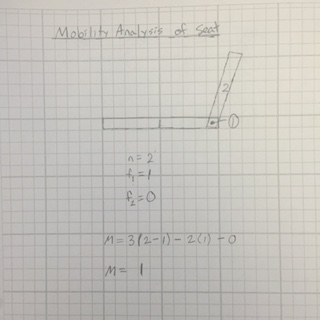 Mobility Analysis of Seat
2
①
n = 2
f₁ = 1
f₂ = 0
M = 3(2-1) - 2(1) - 0
M = 1